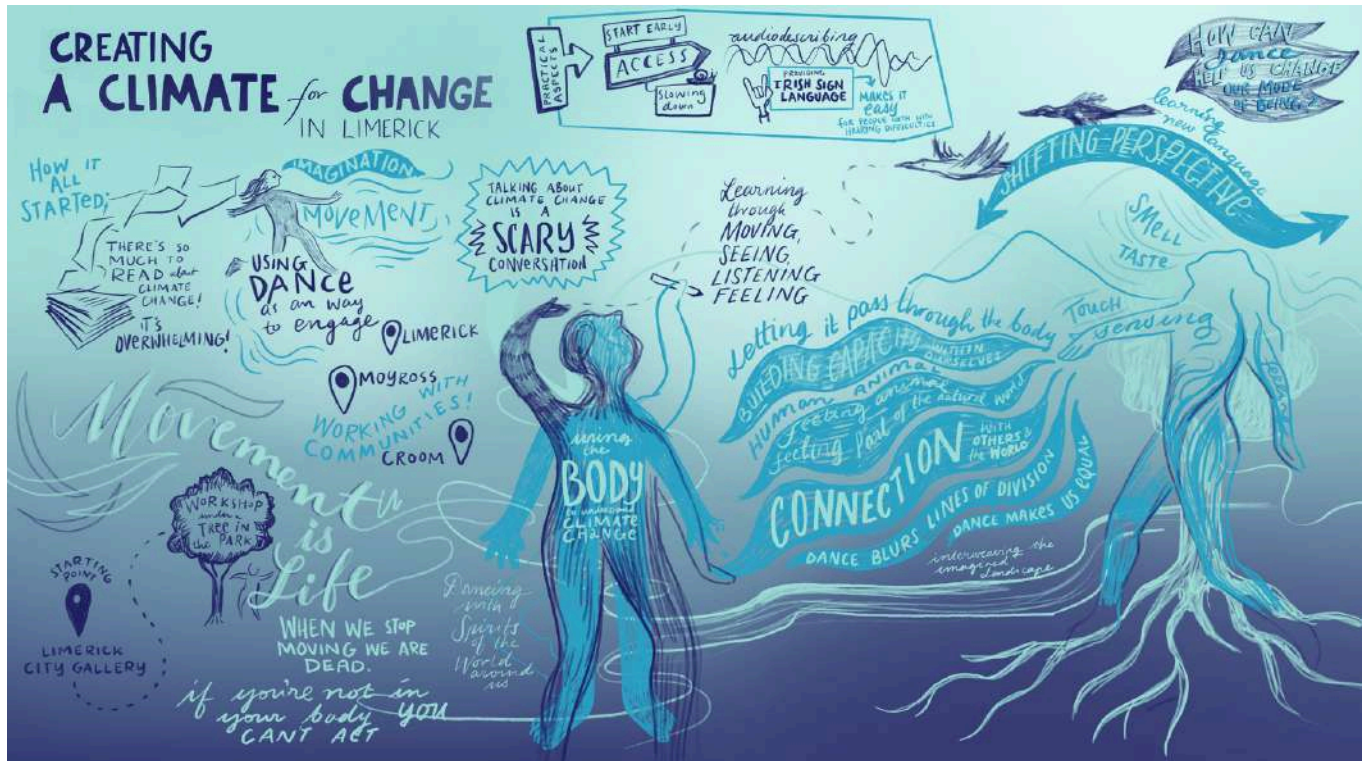 CREATING
A CLIMATE for CHANGE
IN LIMERICK
PRACTICAL
ASPECTS
START EARLY
ACCESS
Slowing
down
audiodescribing
PROVIDING
IRISH SIGN
LANGUAGE
MAKES IT
easy
FOR PEOPLE WITH
HEARING DIFFICULTIES
HOW CAN
dance
HELP US CHANGE
OUR MODE
OF BEING?
learning
new language
SHIFTING PERSPECTIVE
HOW IT
ALL
STARTED;
THERE'S SO
MUCH TO
READ about
CLIMATE
CHANGE!
IT'S
OVERWHELMING!
IMAGINATION
MOVEMENT
USING
DANCE
as an way
to engage
LIMERICK
MOYROSS
WORKING WITH
COMMUNITIES!
CROOM
TALKING ABOUT
CLIMATE CHANGE
IS A
SCARY
CONVERSATION
Learning
through
MOVING,
SEEING,
LISTENING
FEELING
SMELL
TASTE
TOUCH
sensing
Letting it pass through the body
BUILDING CAPACITY WITHIN
OURSELVES
HUMAN ANIMAL
feeling animal
feeling part of the natural world
CONNECTION WITH
OTHERS &
the WORLD
DANCE BLURS LINES OF DIVISION
DANCE MAKES US EQUAL
interweaving the
imagined
landscape
using
the
BODY
to understand
CLIMATE
CHANGE
Movement
is
Life
WORKSHOP
under a
TREE IN
the PARK
STARTING
POINT
LIMERICK
CITY GALLERY
WHEN WE STOP
MOVING WE ARE
DEAD.
if you're not in
your body you
CANT ACT
Dancing
with
Spirits
of the
World
around
us